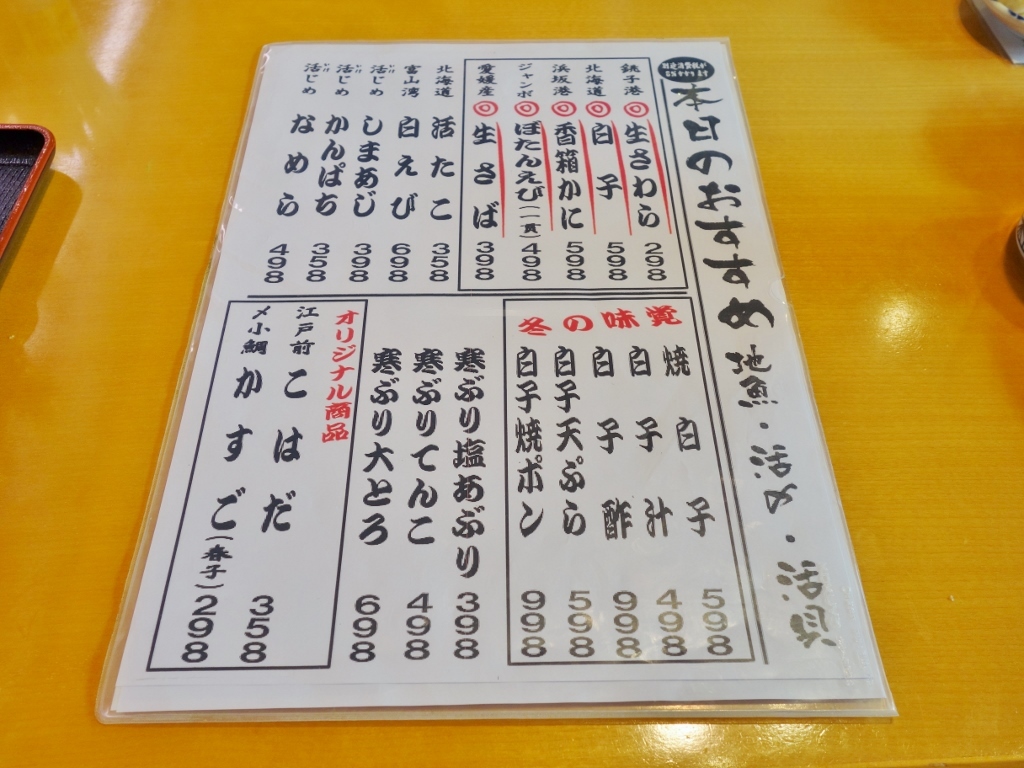 別途消費税が
かかります
本日のおすすめ 地魚・活〆・活貝
銚子港 ◎生さわら 298
北海道 ◎白子 598
浜坂港 ◎香箱かに 598
ジャンボ ◎ぼたんえび(一貫) 498
愛媛産 ◎生さば 398
北海道 活たこ 358
富山湾 白えび 698
活じめ しまあじ 398
活じめ かんぱち 358
活じめ なめら 498
冬の味覚
焼白子 598
白子汁 498
白子酢 998
白子天ぷら 598
白子焼ポン 998
寒ぶり塩あぶり 398
寒ぶりてんこ 498
寒ぶり大とろ 698
オリジナル商品
江戸前 こはだ 358
〆小鯛 かすご(春子) 298